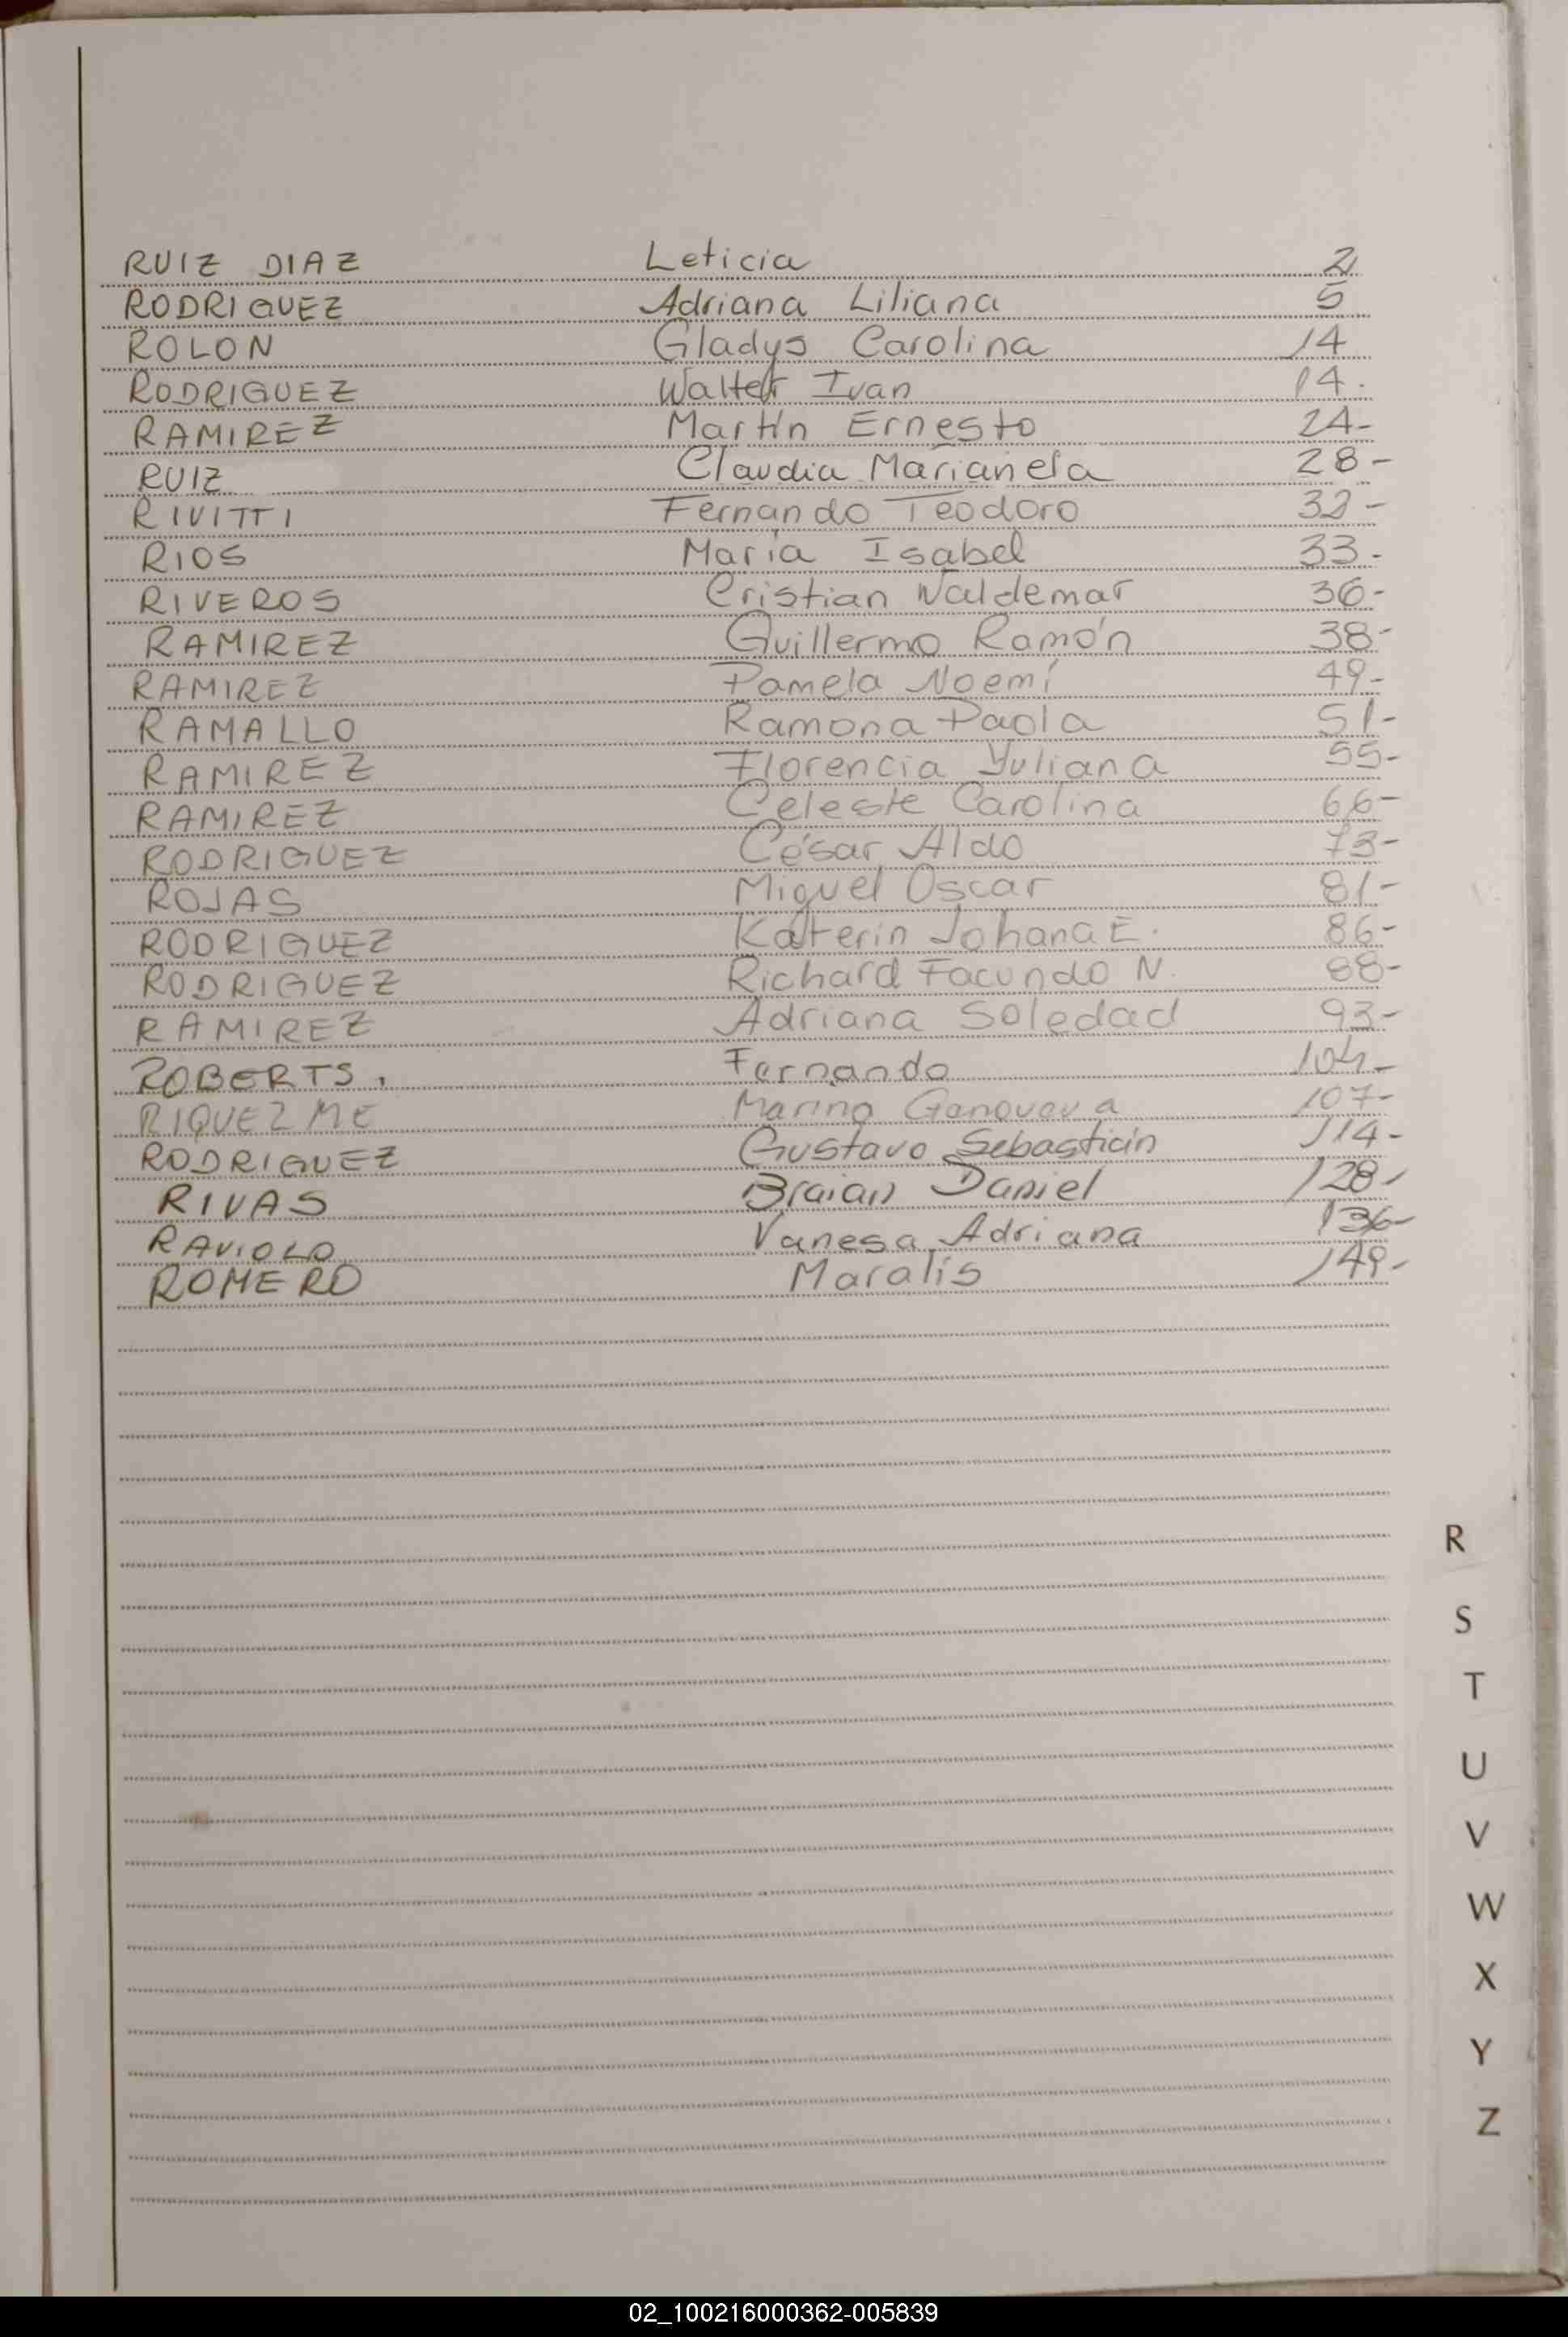 RUIZ DIAZ Leticia 2
RODRIGUEZ Adriana Liliana 5
ROLON Gladys Carolina 14
RODRIGUEZ Walter Ivan 14.
RAMIREZ Martín Ernesto 24-
RUIZ Claudia Marianela 28-
RIVITTI Fernando Teodoro 32-
RIOS María Isabel 33-
RIVEROS Cristian Waldemar 36-
RAMIREZ Guillermo Ramón 38-
RAMIREZ Pamela Noemí 49-
RAMALLO Ramona Paola 51-
RAMIREZ Florencia Yuliana 55-
RAMIREZ Celeste Carolina 66-
RODRIGUEZ César Aldo 73-
ROJAS Miguel Oscar 81-
RODRIGUEZ Katerin Johana E. 86-
RODRIGUEZ Richard Facundo N. 88-
RAMIREZ Adriana Soledad 93-
ROBERTS. Fernando 104-
RIQUEZME Marina Genoveva 107-
RODRIGUEZ Gustavo Sebastián 114-
RIVAS Braian Daniel 128-
RAVIOLO Vanesa Adriana 136-
ROMERO Maralis 149-
R
S
T
U
V
W
X
Y
Z
02_100216000362-005839